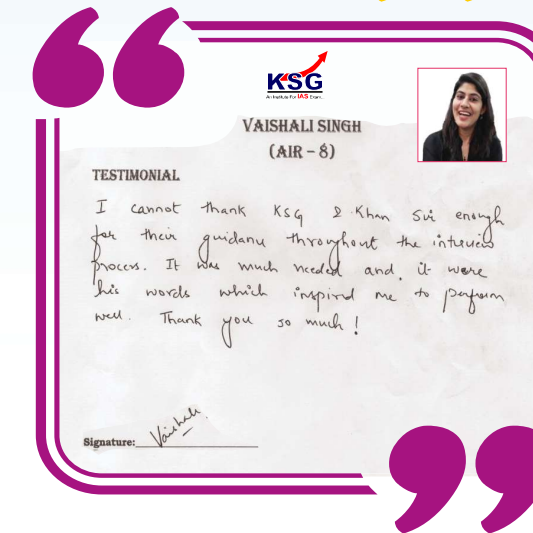 KSG
An Institute For IAS Exam..
VAISHALI SINGH
(AIR – 8)
TESTIMONIAL
I cannot thank KSG & Khan Sir enough
for their guidance throughout the interview
process. It was much needed and, it were
his words which inspired me to perform
well. Thank you so much!
Signature: Vaishali